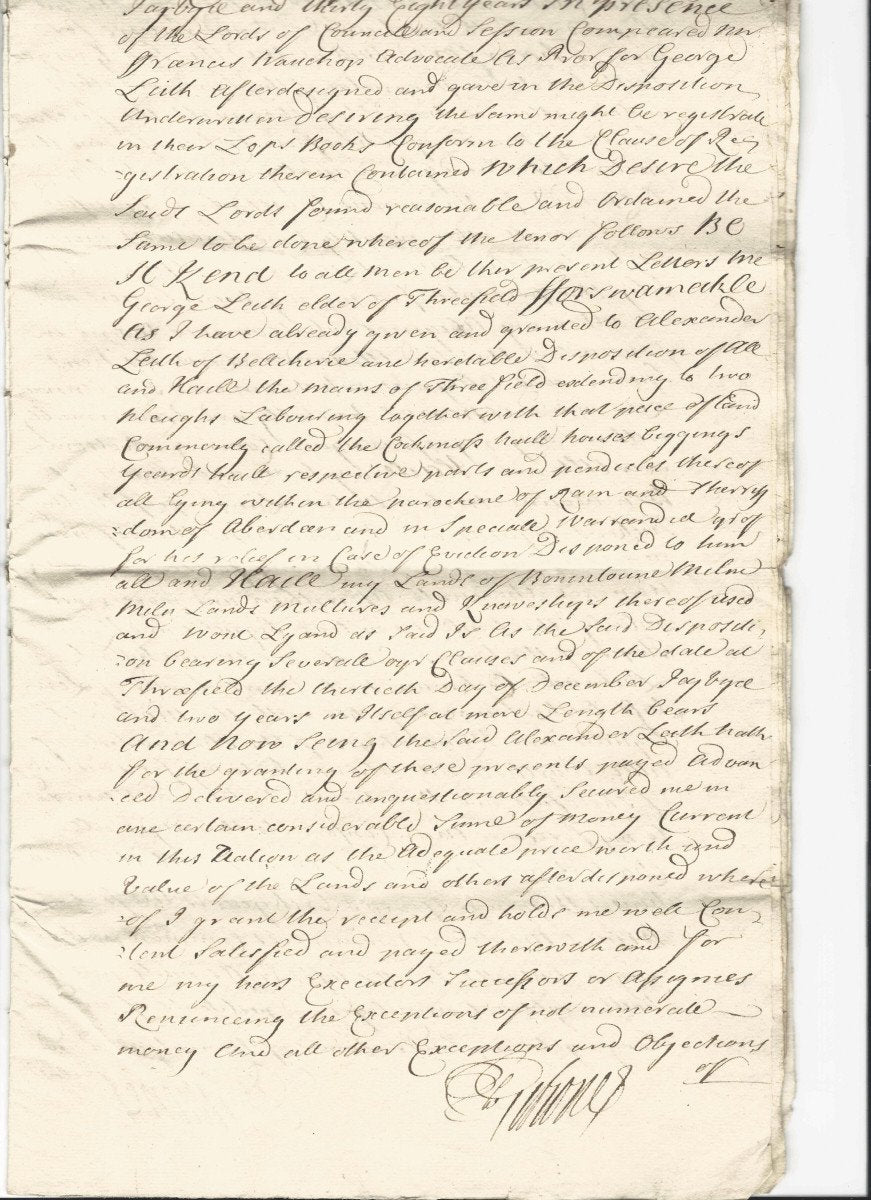 Jaivyle and thirty Eight years In presence
of the Lords of Councill and Session Compeared Mr
Francis Wauchop Advocate As Pror for George
Leith Afterdesigned and gave in the Disposition
Underwritten Desiring the same might be registrate
in their Lops Books Conform to the Clause of Re
gistration therein Contained Which Desire the
Saids Lords found reasonable and Ordained the
Same to be done whereof the tenor follows BE
It Kend to all men be thir present Letters Me
George Leith elder of Threefield Fforswameikle
As I have already given and granted to Alexander
Leith of Bellcherie ane heretable Disposition of All
and Haill the mains of Threefield extending to two
pleughs Labouring together with that peice of Land
Commonly called the Cocksmoss haill houses biggings
Yeards haill respective parts and pendicles thereof
all Lying within the parochine of Rain and Sherriff
-dom of Aberdeen and in Speciall Warrandice yrof
for his relief in Case of Eviction Disponed to him
all and Haill my Lands of Bonintoune Milne
Miln Lands Multures and Knaveships thereof used
and wont Lyand as said Is As the Said Dispositi
-on bearing Severall oyr Clauses and of the date at
Threefield the thirtieth Day of December Jajvijc
and two years in Itself at more Length bears
And Now Seing the Said Alexander Leith hath
for the granting of these presents payed Advan
ced Delivered and unquestionably Secured me in
ane certain considerable Sume of Money Current
in this Nation as the Adequate price worth and
Value of the Lands and others afterdisponed where
-of I grant the receipt and holds me well Con
-tent Satisfied and payed therewith and for
me my heirs Executors Successors or Assignes
Renuncing the Exceptions of not numerate
money And all other Exceptions and Objections
of